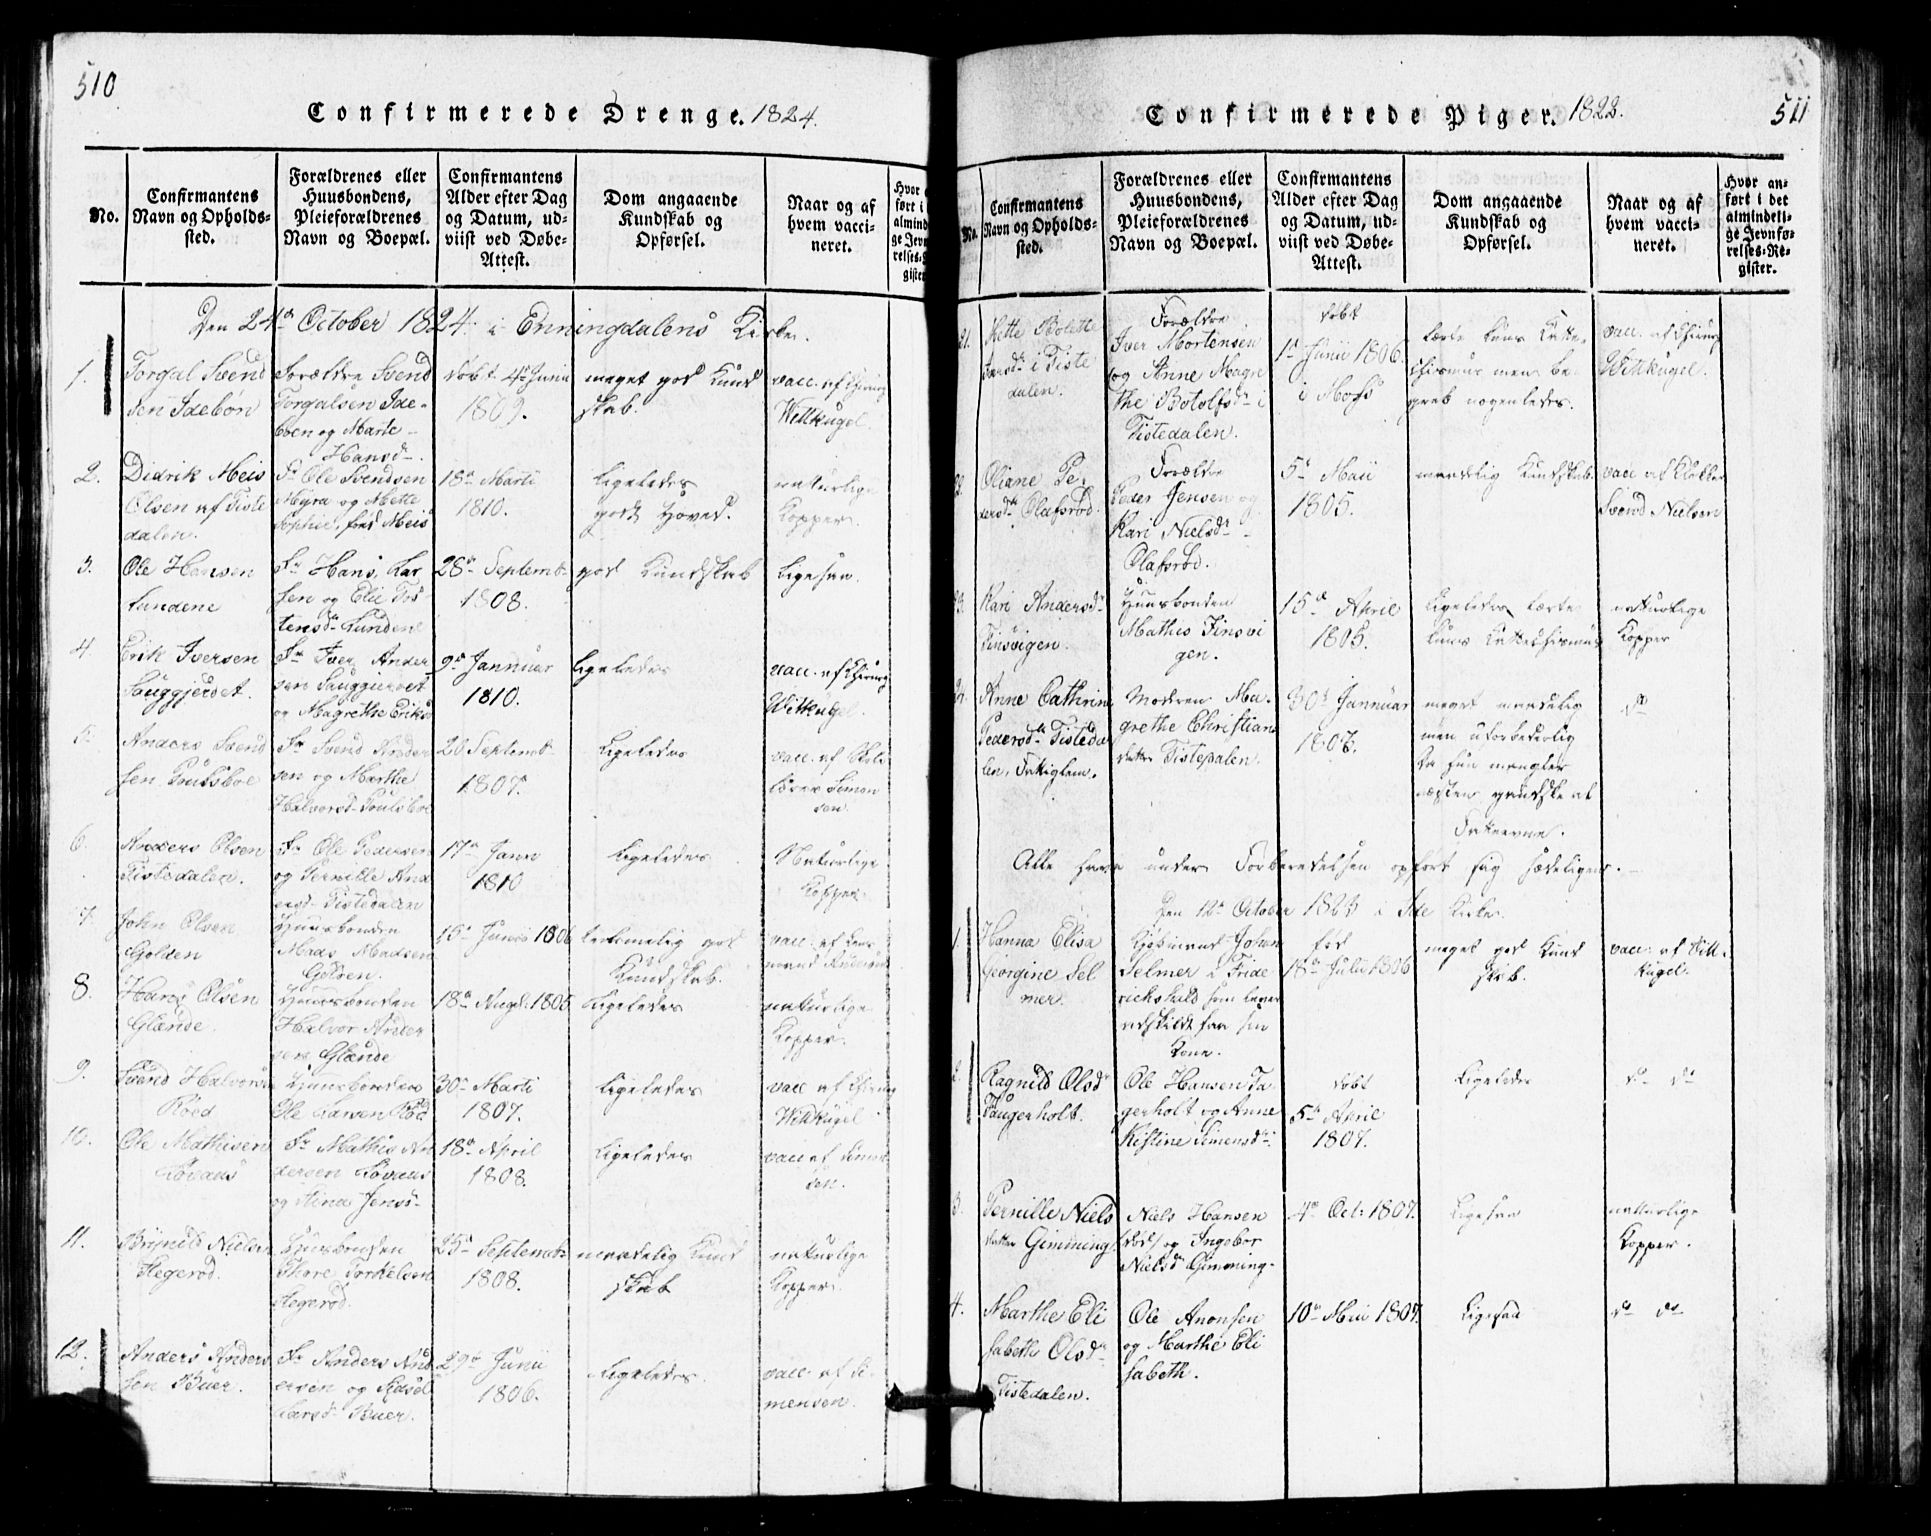 510
Confirmerede Drenge. 1824.
No.
Confirmantens
Navn og Opholds-
sted.
Forældrenes eller
Huusbondens,
Pleieforældrenes
Navn og Boepæl.
Confirmantens
Alder efter Dag
og Datum, ud-
viist ved Døbe-
Attest.
Dom angaaende
Kundskab og
Opførsel.
Naar og af
hvem vacci-
neret.
Den 24de October 1824 i Enningdalens Kirke.
1.
Torgal Svend
sen Idebøn
Forældre Svend
Torgalsen Ide-
boen og Marte
Hansd.
døbt 4de Junii
1809.
meget god Kund
skab.
vacc. af Chirurg
Wittkugel.
2.
Didrik Meis
Olsen af Tiste
dalen.
Fr Ole Svendsen
Myra og Mette
Sophie, fød Meis
18de Marti
1810.
Ligeledes
godt Hoved.
naturlige
Kopper
3.
Ole Hansen
Lundene
Fr Hans Lar
sen og Elie Tos
tensdr Lundene
28de Septemb.
1808.
god Kundskab
Ligesaa.
4
Erik Iversen
Sauggjerdet.
Fr Iver Ander
sen Sauggierdet
og Magrethe Eriks
9de Januar
1810.
ligeledes
vacc. af Chirurg
Wittkugel.
5.
Anders Svend
sen Poulsboe
Fr Svend Ander
sen og Marthe
Halvorsd. Poulsboe
20 Septemb.
1807.
Ligeledes
vacc. af Skole
lærer Simon
sen.
6.
Anders Olsen
Tistedalen.
Fr Ole Pedersen
og Pernille And
ersd. Tistedalen
17de Janu
1810
Ligeledes
Naturlige
Kopper.
7.
John Olsen
Golden
Huusbonden
Mads Madsen
Golden.
15de Junii 1806
temmelig god
Kundskab.
vacc. af
8.
Hans Olsen
Glende.
Huusbonden
Halvor Ander
sen Glende
18de Augl. 1805
Ligeledes
naturlige
Kopper.
9.
Svend Halvors
Röed
Huusbonden
Ole Larsen Röd
30de Marti
1807.
Ligeledes
vacc af Chirurg
Wittkugel
10.
Ole Mathisen
Fr Mathis An
dersen
og Stina Jensd.
18de April
1808.
Ligeledes
vacc af Simon
sen.
11.
Brynild Nielsen
Hegerød.
Huusbonden
Thore Torkelsen
Hegerød.
25de Septemb:
1808.
maadelig Kund
skab
naturlige
Kopper.
12.
Anders Anders
sen Buer.
Fr Anders And
ersen og Sidsel
Larsd. Buer.
29de Junii
1806.
Ligeledes.
vacc. af Si-
mensen.
Confirmerede Piger. 1822.
511
No.
Confirmantens
Navn og Opholds-
sted.
Forældrenes eller
Huusbondens,
Pleieforældrenes
Navn og Boepæl.
Confirmantens
Alder efter Dag
og Datum, ud-
viist ved Døbe-
Attest.
Dom angaaende
Kundskab og
Opførsel.
Naar og af
hvem vacci-
neret.
Hvor an-
ført i det
almindeli-
ge Jevnfø-
relses-Re-
gister.
21.
Mette Bolette
Iversdr i Tiste
dalen.
Forældre
Iver Mortensen
og Anne Magre
the Botolfsdr i
Tistedalen.
døbt
1de Junii 1806.
i Moss
lærte luns Catte-
chismus men be-
greb nogenledes.
vacc. af Chirurg
Wittkugel.
Oliane Pe-
dersdr Olafsrød.
Forældre
Peder Jensen og
Kari Nielsdr
Olafsrød.
5te Maii
1805.
maadelig Kundskab.
vacc af Klokker
Svend Nielsen
Kari Andersdr
Tinsvigen.
Huusbonden
Mathis Tinsvi
gen.
15de April
1805.
ligeledes lærte
luns Cattechismus
naturlige
Kopper
Anne Cathrine
Pedersdr Tisteda
len, Fattiglem.
Moderen Ma-
grethe Christians
datter Tistedalen.
30de Januar
1807.
meget maadelig
men uforbederlig
da hun mangler
næsten gandske al
Fatteevne.
do
Alle have under Forberedelsen opført sig sædeligen.
Den 12te October 1823 i Ide Kirke.
1.
Hanna Elisa
Georgine Sel
mer.
Kjøbmand Johan
Selmer i Fride
richshald som lever
adskildt fra sin
Kone.
fød
18de Julii 1806
meget god Kund
skab.
vacc. af Witt-
kugel.
2.
Ragnild Olsdr
Faugerholt.
Ole Hansen Fa
gerholt og Anne
Kistine Simensdr.
døbt
5te April
1807.
Ligeledes
do do
3.
Pernille Niels
datter Gimming
Niels Hansen
(død) og Ingebor
Nielsdr Gimming.
4de Oct: 1807.
Ligesaa
naturlige
Kopper.
4.
Marthe Eli
sabeth Olsdr
Tistedalen.
Ole Anonsen
og Marthe Eli
sabeth.
10de Mai 1807.
Ligesaa
do do